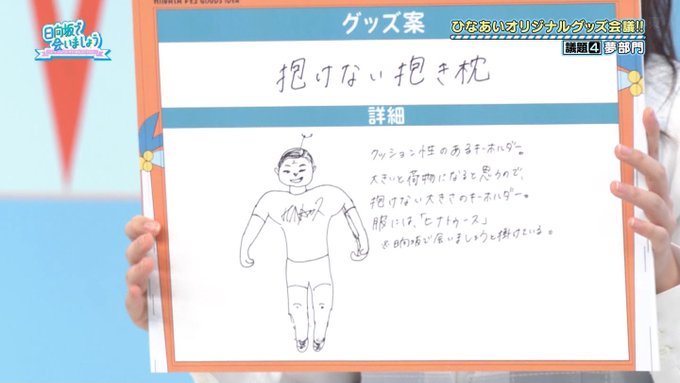 日向坂で会いましょう
HINATA FES GOODS IDEA
グッズ案
ひなあいオリジナルグッズ会議!!
議題4 夢部門
抱けない抱き枕
詳細
クッション性のあるキーホルダー。
大きいと荷物になると思うので、
抱けない大きさのキーホルダー。
服には、「ヒナトゥース」
※日向坂で会いましょうと掛けている。